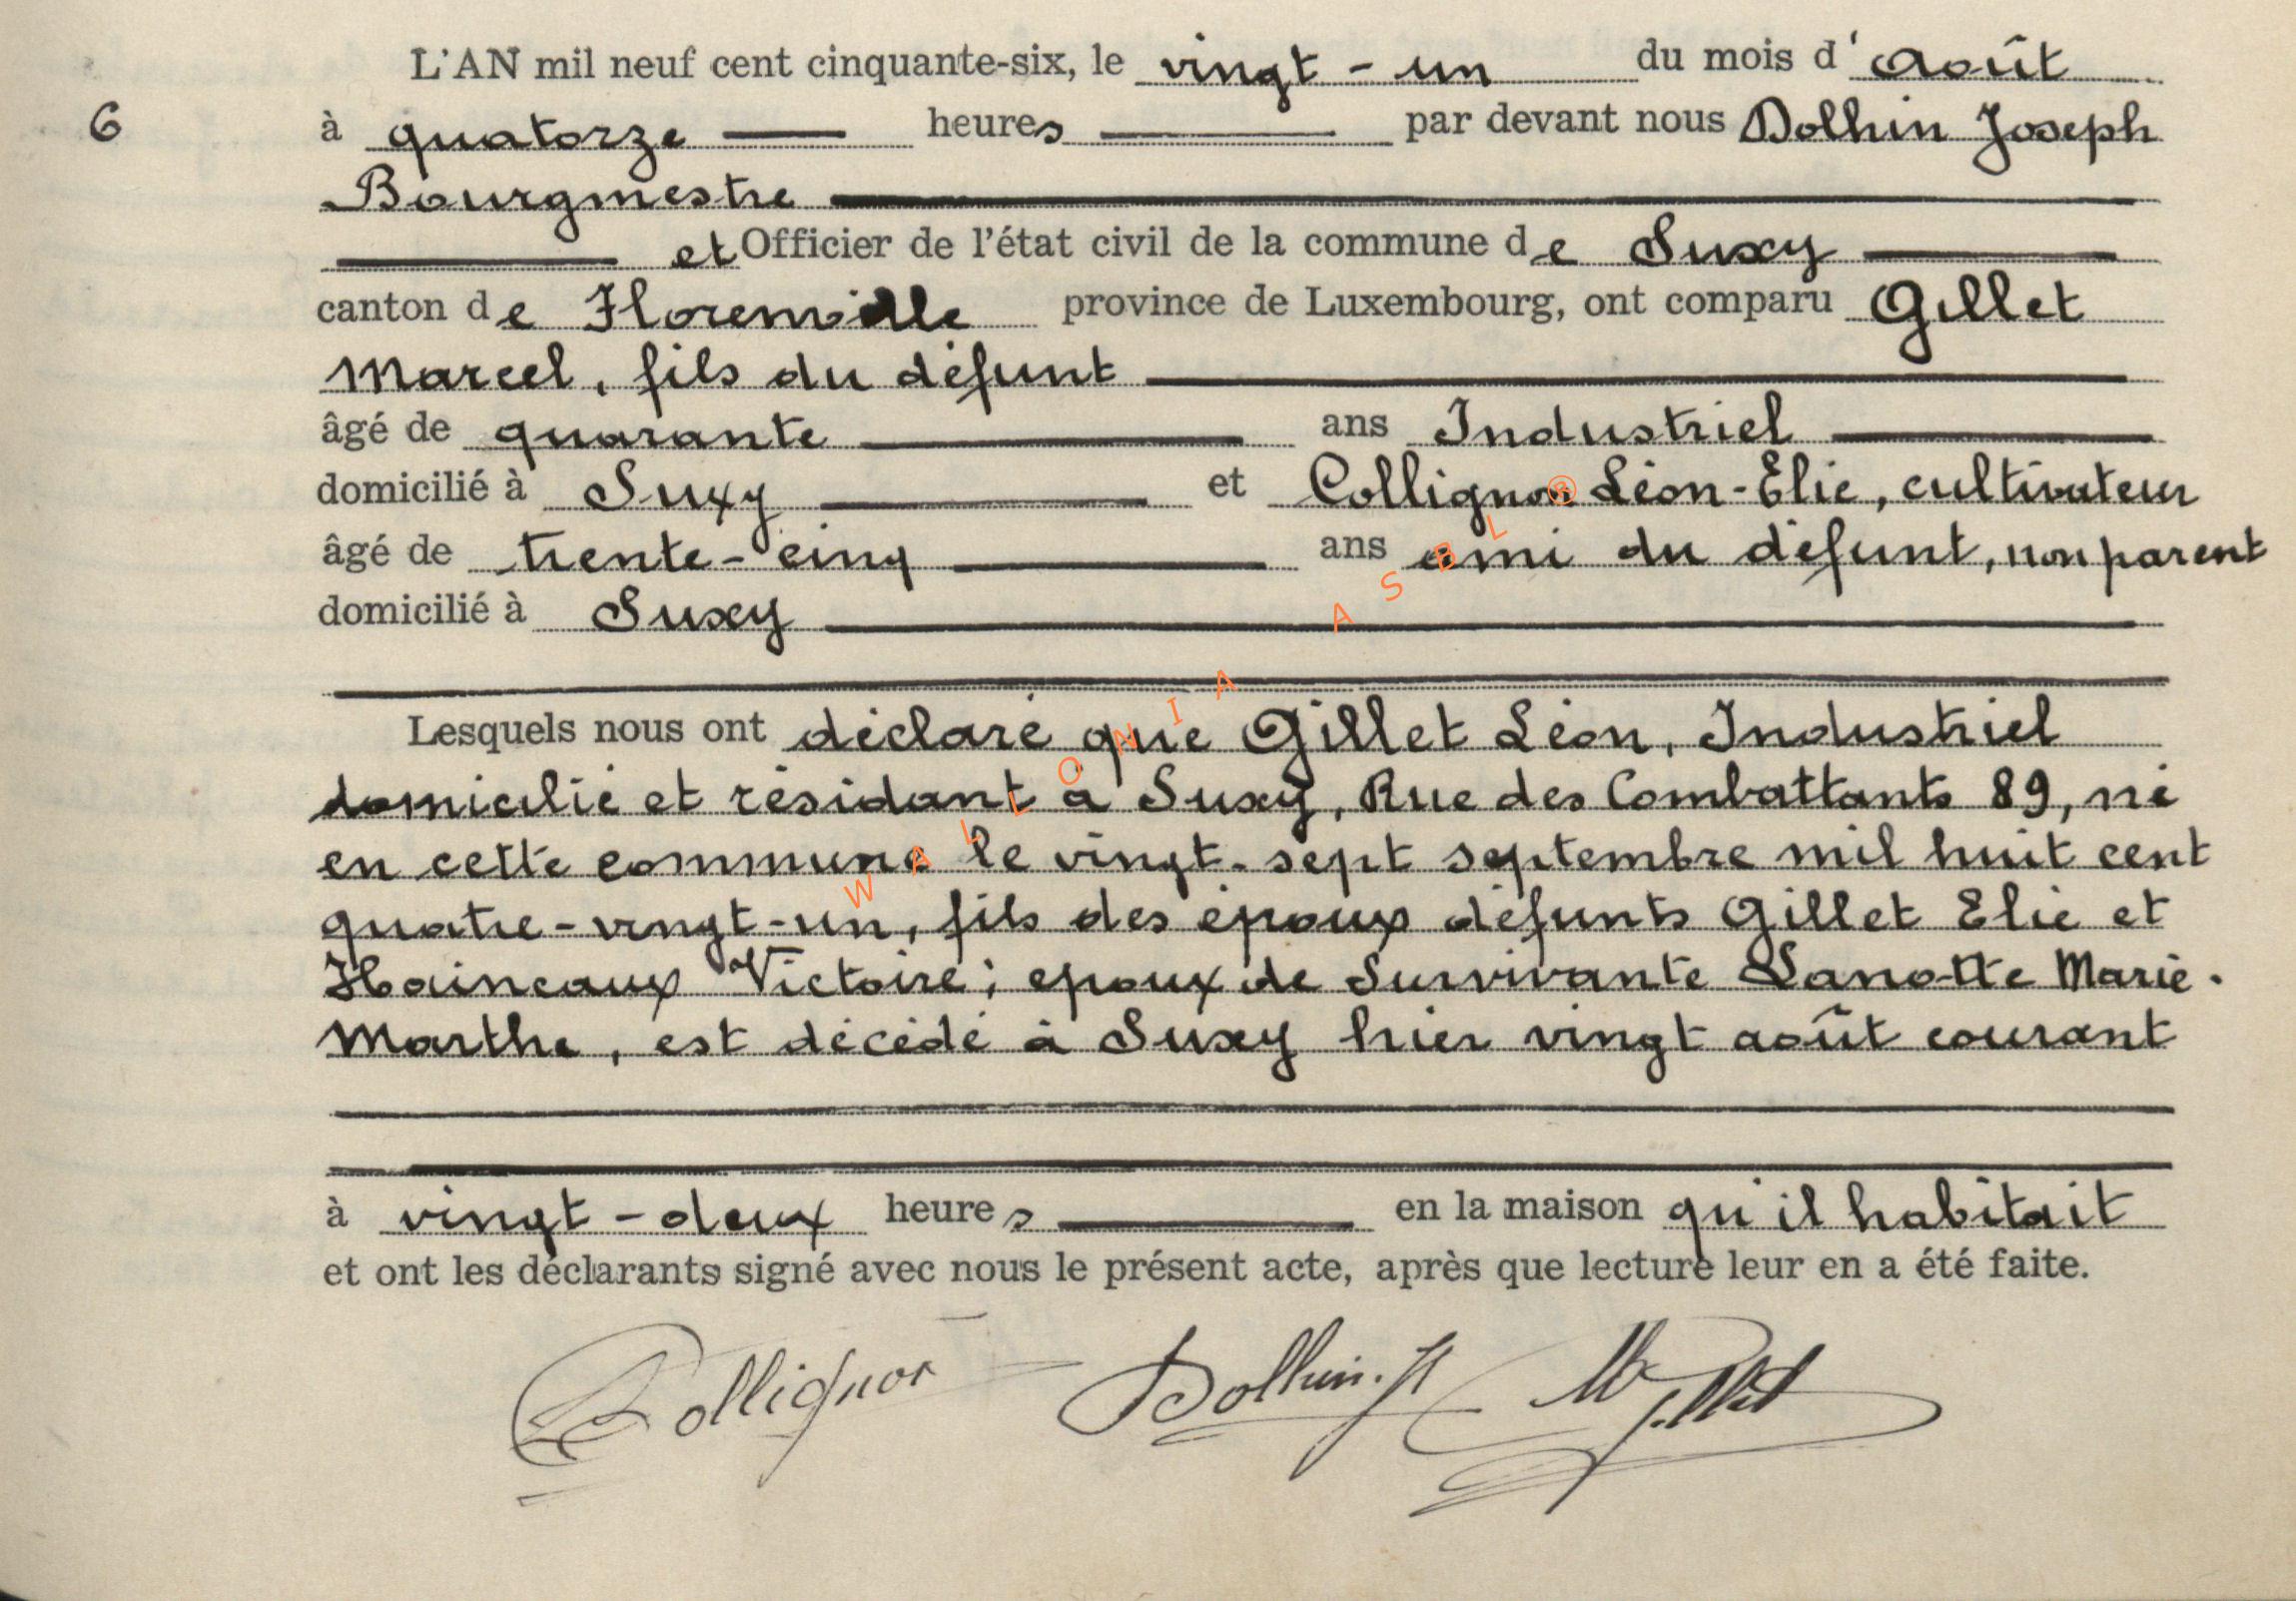 L'AN mil neuf cent cinquante-six, le vingt-un du mois d'Août
6 à quatorze heures par devant nous Dolhin Joseph
Bourgmestre
et Officier de l'état civil de la commune de Suxy
canton de Florenville province de Luxembourg, ont comparu Gillet
Marcel, fils du défunt
âgé de quarante ans Industriel
domicilié à Suxy et Collignon Léon-Elie, cultivateur
âgé de trente-cinq ans ami du défunt, non parent
domicilié à Suxy
Lesquels nous ont déclaré que Gillet Léon, Industriel
domicilié et résidant à Suxy, Rue des Combattants 89, né
en cette commune le vingt-sept septembre mil huit cent
quatre-vingt-un, fils des époux défunts Gillet Elie et
Haineaux Victoire; epoux de Survivante Lanotte Marie-
Marthe, est décédé à Suxy hier vingt août courant
à vingt-deux heures en la maison qu'il habitait
et ont les déclarants signé avec nous le présent acte, après que lecture leur en a été faite.
Collignon Dolhin. J M Gillet
WALLONIA ASBL ®